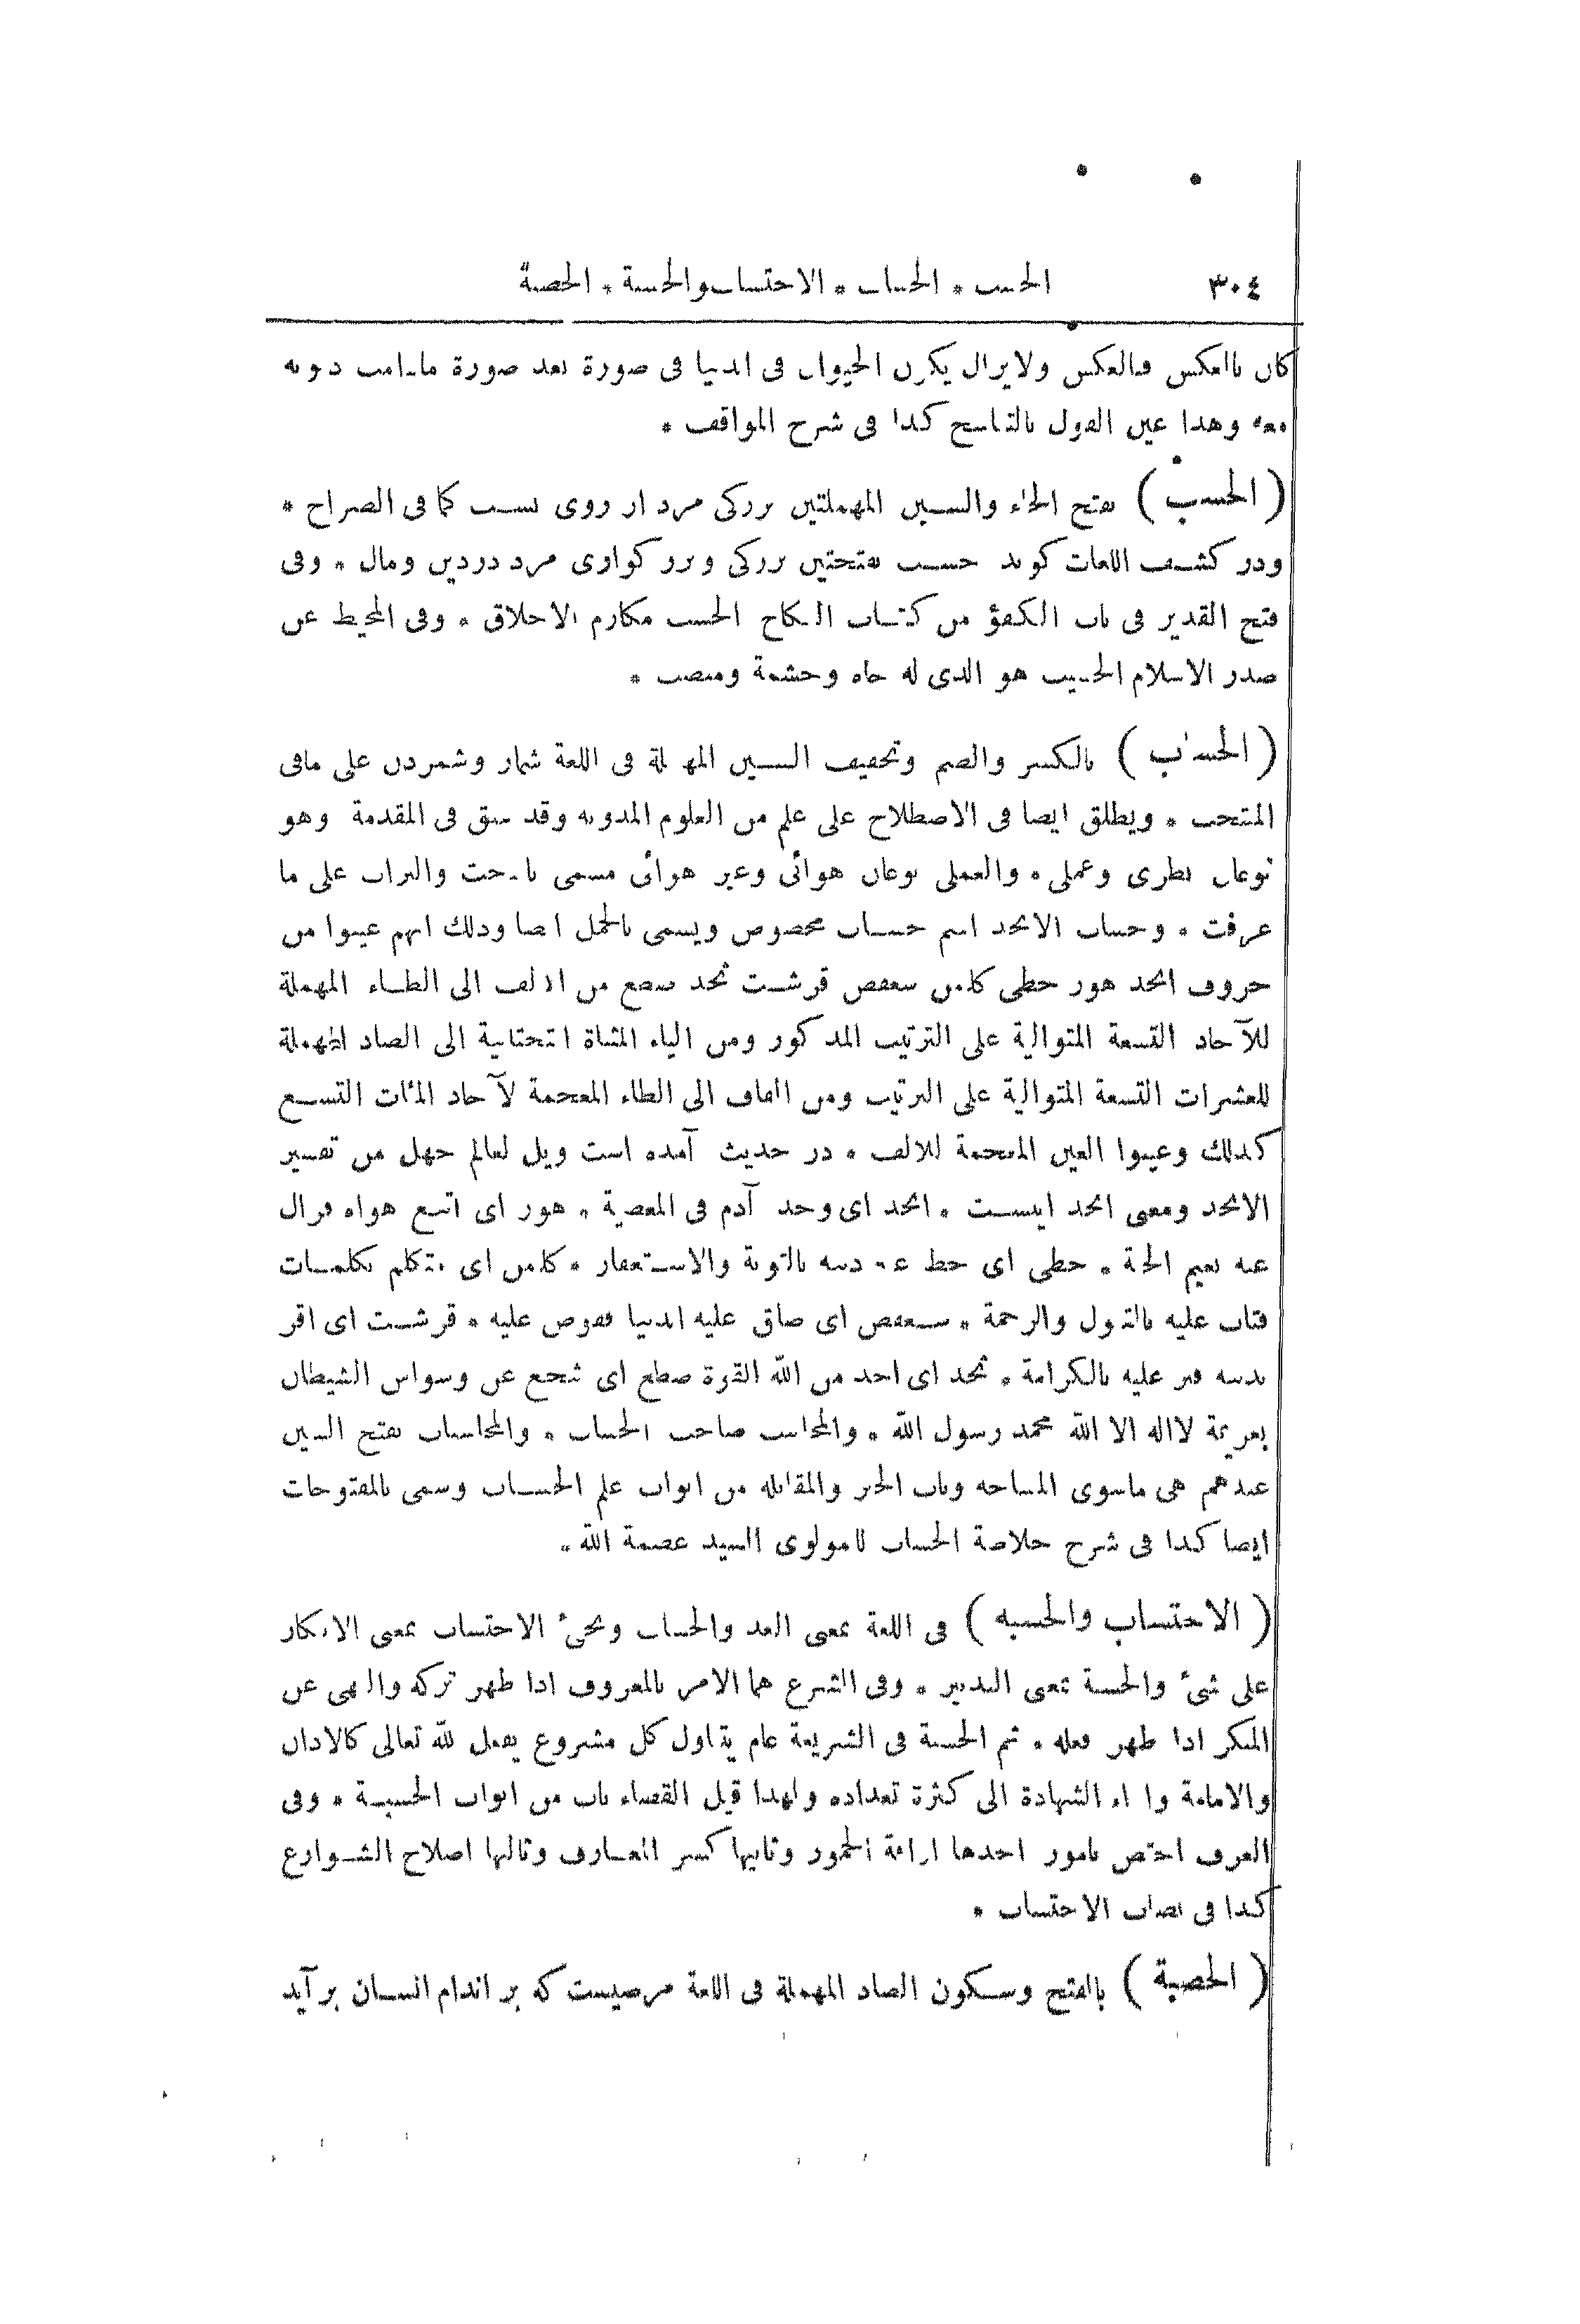 ٣٠٤ الحسب * الحساب * الاحتساب والحسبة * الحصبة
كان بالعكس فبالعكس ولايزال يكون الحيوان فى الدنيا فى صورة بعد صورة مادامت ذنوبه
معه وهذا عين القول بالتناسخ كذا فى شرح المواقف *
( الحسب ) بفتح الحاء والسين المهملتين بزركى مرد از روى نسب كما فى الصراح *
ودر كشف اللغات كويد حسب بفتحتين بزركى وبزر كوارى مرد دردين ومال * وفى
فتح القدير فى باب الكفؤ من كتاب النكاح الحسب مكارم الاخلاق * وفى المحيط عن
صدر الاسلام الحسيب هو الذى له جاه وحشمة ومنصب *
( الحساب ) بالكسر والضم وتخفيف السين المهملة فى اللغة شمار وشمردن على مافى
المنتخب * ويطلق ايضا فى الاصطلاح على علم من العلوم المدونه وقد سبق فى المقدمة وهو
نوعان نظرى وعملى * والعملى نوعان هوائى وغير هوائى مسمى بالتخت والتراب على ما
عرفت * وحساب الابجد اسم حساب مخصوص ويسمى بالجمل ايضا وذلك انهم عينوا من
حروف ابجد هوز حطى كلمن سعفص قرشت ثخذ ضظغ من الالف الى الطاء المهملة
للآحاد التسعة المتوالية على الترتيب المذكور ومن الياء المثناة التحتانية الى الصاد المهملة
للعشرات التسعة المتوالية على الترتيب ومن القاف الى الظاء المعجمة لآحاد المئات التسع
كذلك وعينوا الغين المعجمة للالف * در حديث آمده است ويل لعالم جهل من تفسير
الابجد ومعنى ابجد اينست * ابجد اى وجد آدم فى المعصية * هوز اى اتبع هواه فزال
عنه نعيم الجنة * حطى اى حط عنه ذنبه بالتوبة والاستغفار * كلمن اى متكلم بكلمات
فتاب عليه بالقبول والرحمة * سعفص اى ضاق عليه الدنيا ففوض عليه * قرشت اى اقر
بذنبه فبر عليه بالكرامة * ثخذ اى اخذ من الله القوة ضظغ اى شجع عن وسواس الشيطان
بعزيمة لااله الا الله محمد رسول الله * والمحاسب صاحب الحساب * والمحاسبات بفتح السين
عندهم هى ماسوى المساحه وباب الجبر والمقابله من ابواب علم الحساب وسمى بالمفتوحات
ايضا كذا فى شرح خلاصة الحساب للمولوى السيد عصمة الله *
( الاحتساب والحسبه ) فى اللغة بمعنى العد والحساب ويجئ الاحتساب بمعنى الانكار
على شئ والحسبة بمعنى التدبير * وفى الشرع هما الامر بالمعروف اذا ظهر تركه والنهى عن
المنكر اذا ظهر فعله * ثم الحسبة فى الشريعة عام يتناول كل مشروع يفعل لله تعالى كالاذان
والامامة واداء الشهادة الى كثرة تعداده ولهذا قيل القضاء باب من ابواب الحسبة * وفى
العرف اختص بامور احدها اراقة الخمور وثانيها كسر المعازف وثالثها اصلاح الشوارع
كذا فى نصاب الاحتساب *
( الحصبة ) بالفتح وسكون الصاد المهملة فى اللغة مرضيست كه بر اندام انسان برآيد